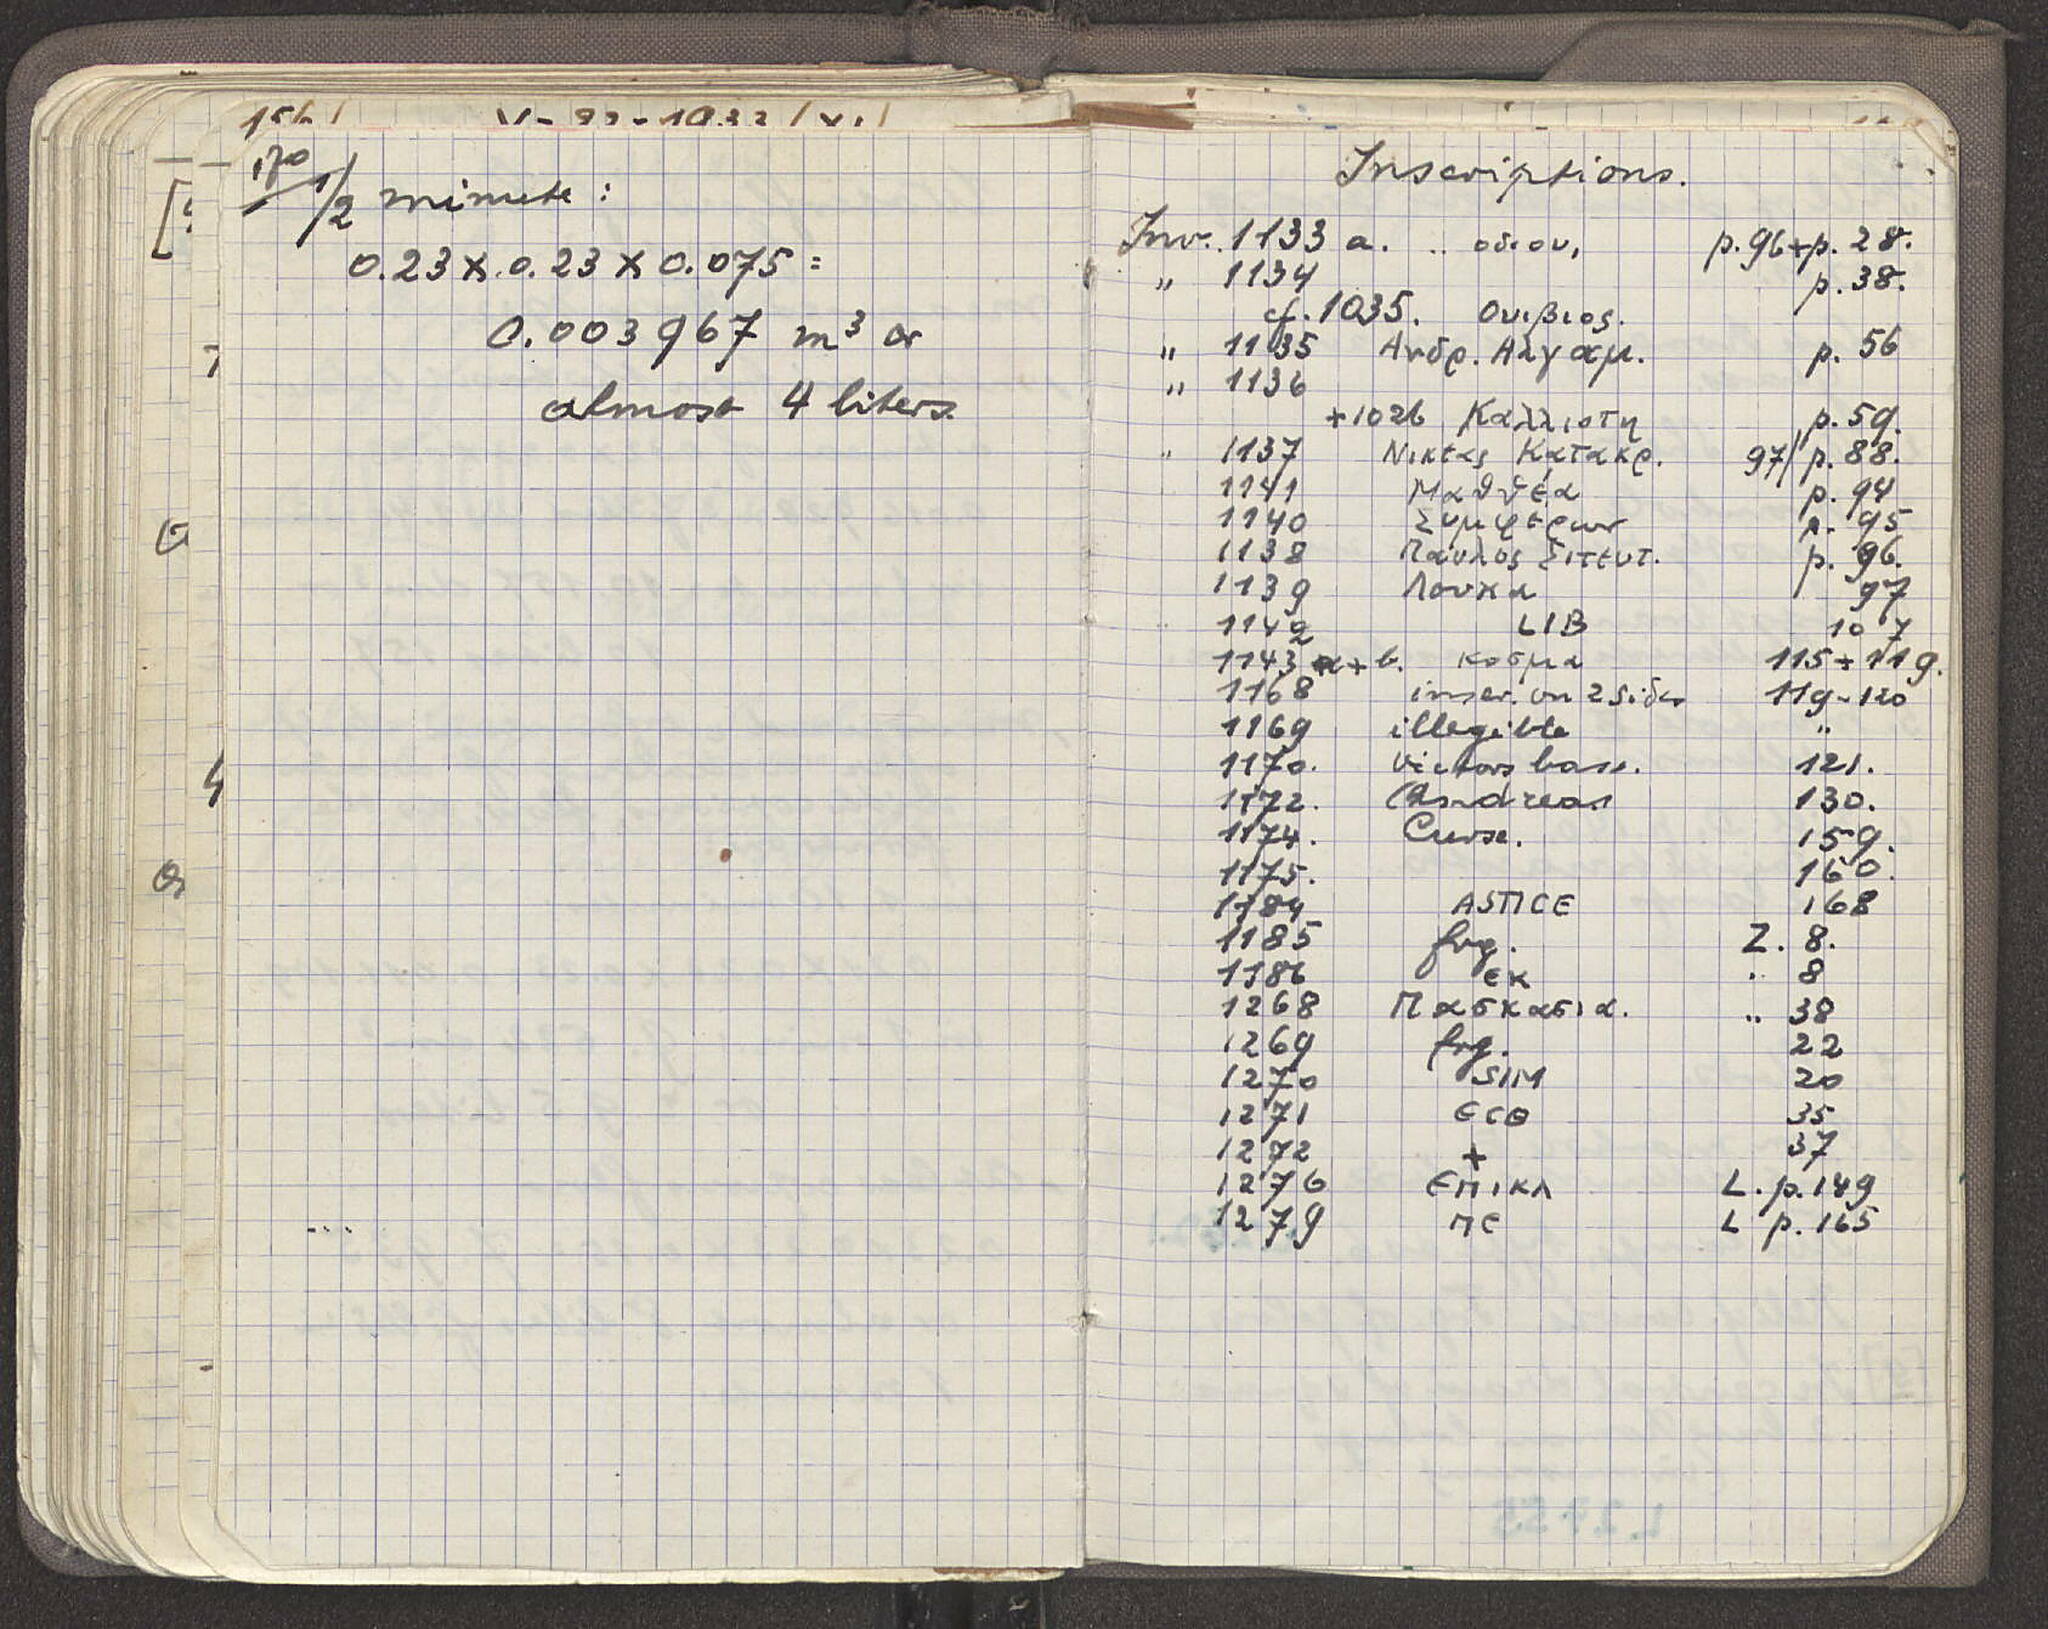 170
1/2 minute :
0.23 x 0.23 x 0.075 =
0.003967 m³ or
almost 4 liters.
Inscriptions.
Inv. 1133 a. .. οδιον, p. 96 + p. 28.
" 1134 p. 38.
cf. 1035. Ουιβιος.
" 1135 Ανδρ. Αλγαμ. p. 56
" 1136
+1026 Καλλιστη p. 59.
" 1137 Νικιας Κατακρ. 97/ p. 88.
1141 Μαθθέα p. 94
1140 Συμφέρων p. 95
1138 Παυλος Σιτευτ. p. 96.
1139 Λουκα 97
1142 LIB 107
1143 a + b. κοσμα 115 + 119.
1168 inscr. on 2 sides 119-120
1169 illegible "
1170. Victors base. 121.
1172. Andreas 130.
1174. Curse. 159.
1175. 160.
1184 ASTICE 168
1185 frg. Z. 8.
1186 ЄΚ " 8
1268 Πασκασια. " 38
1269 frg. 22
1270 SIM 20
1271 ЄCΘ 35
1272 + 37
1276 ЄΠΙΚΛ L. p. 149
1279 ΠЄ L p. 165